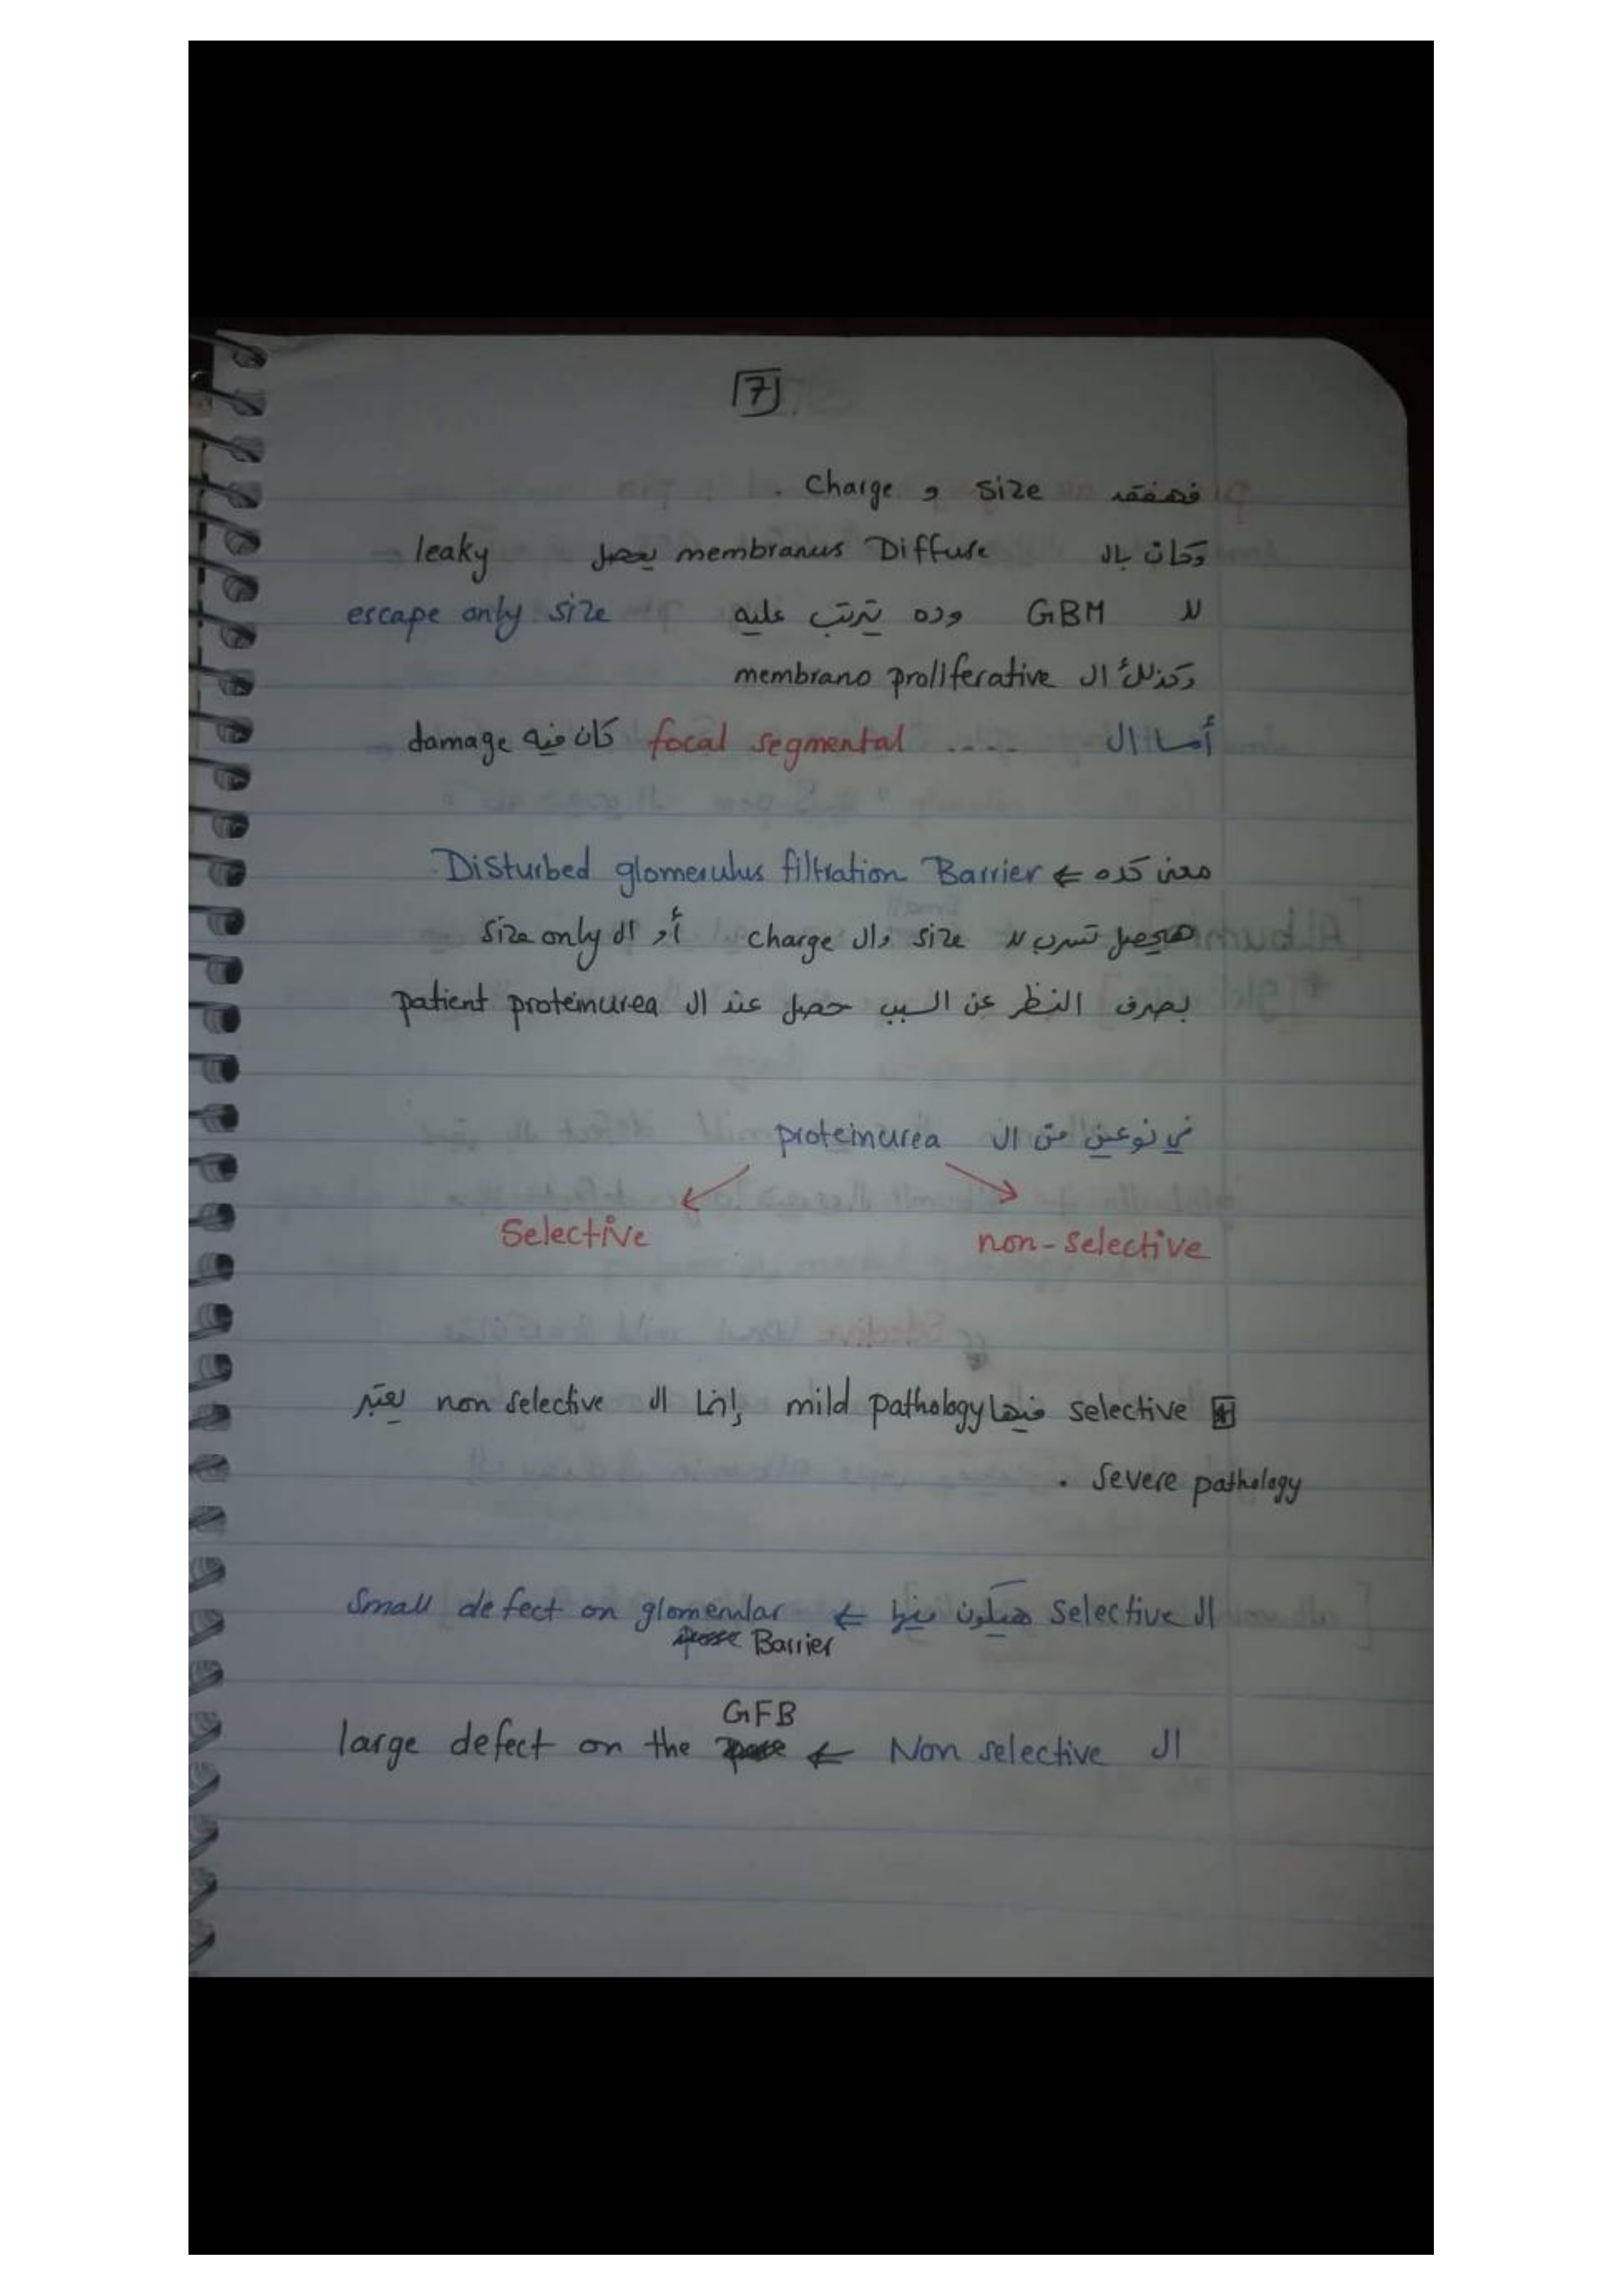 7
فهفقد size و charge .
وكان بالـ membranus Diffuse يحصل leaky
للـ GBM وده يترتب عليه escape only size
وكذلك ال membrano proliferative
أما ال .... focal segmental كان فيه damage
معنى كده ⇐ Disturbed glomerulus filtration Barrier
هيحصل تسرب للـ size وال charge أو ال size only
بصرف النظر عن السبب حصل عند ال patient proteinurea
في نوعين من ال proteinurea
Selective non-selective
selective فيها mild pathology إنما ال non selective يعتبر
severe pathology .
ال selective هيكون فيها ⇐ small defect on glomerular
Barrier
GFB
ال Non selective ⇐ large defect on the